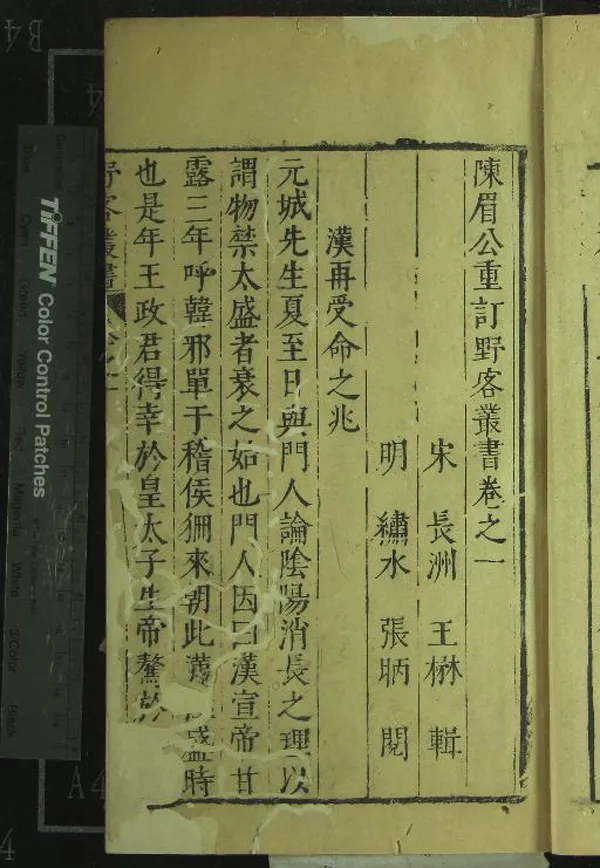 陳眉公重訂野客叢書卷之一
宋 長洲 王楙 輯
明 繡水 張昞 閱
漢再受命之兆
元城先生夏至日與門人論陰陽消長之理以
謂物禁太盛者衰之始也門人因曰漢宣帝甘
露三年呼韓邪單于稽侯狦來朝此漢盛時
也是年王政君得幸於皇太子生帝驁於
野客叢書 卷之一
TIFFEN Color Control Patches
B4
A4